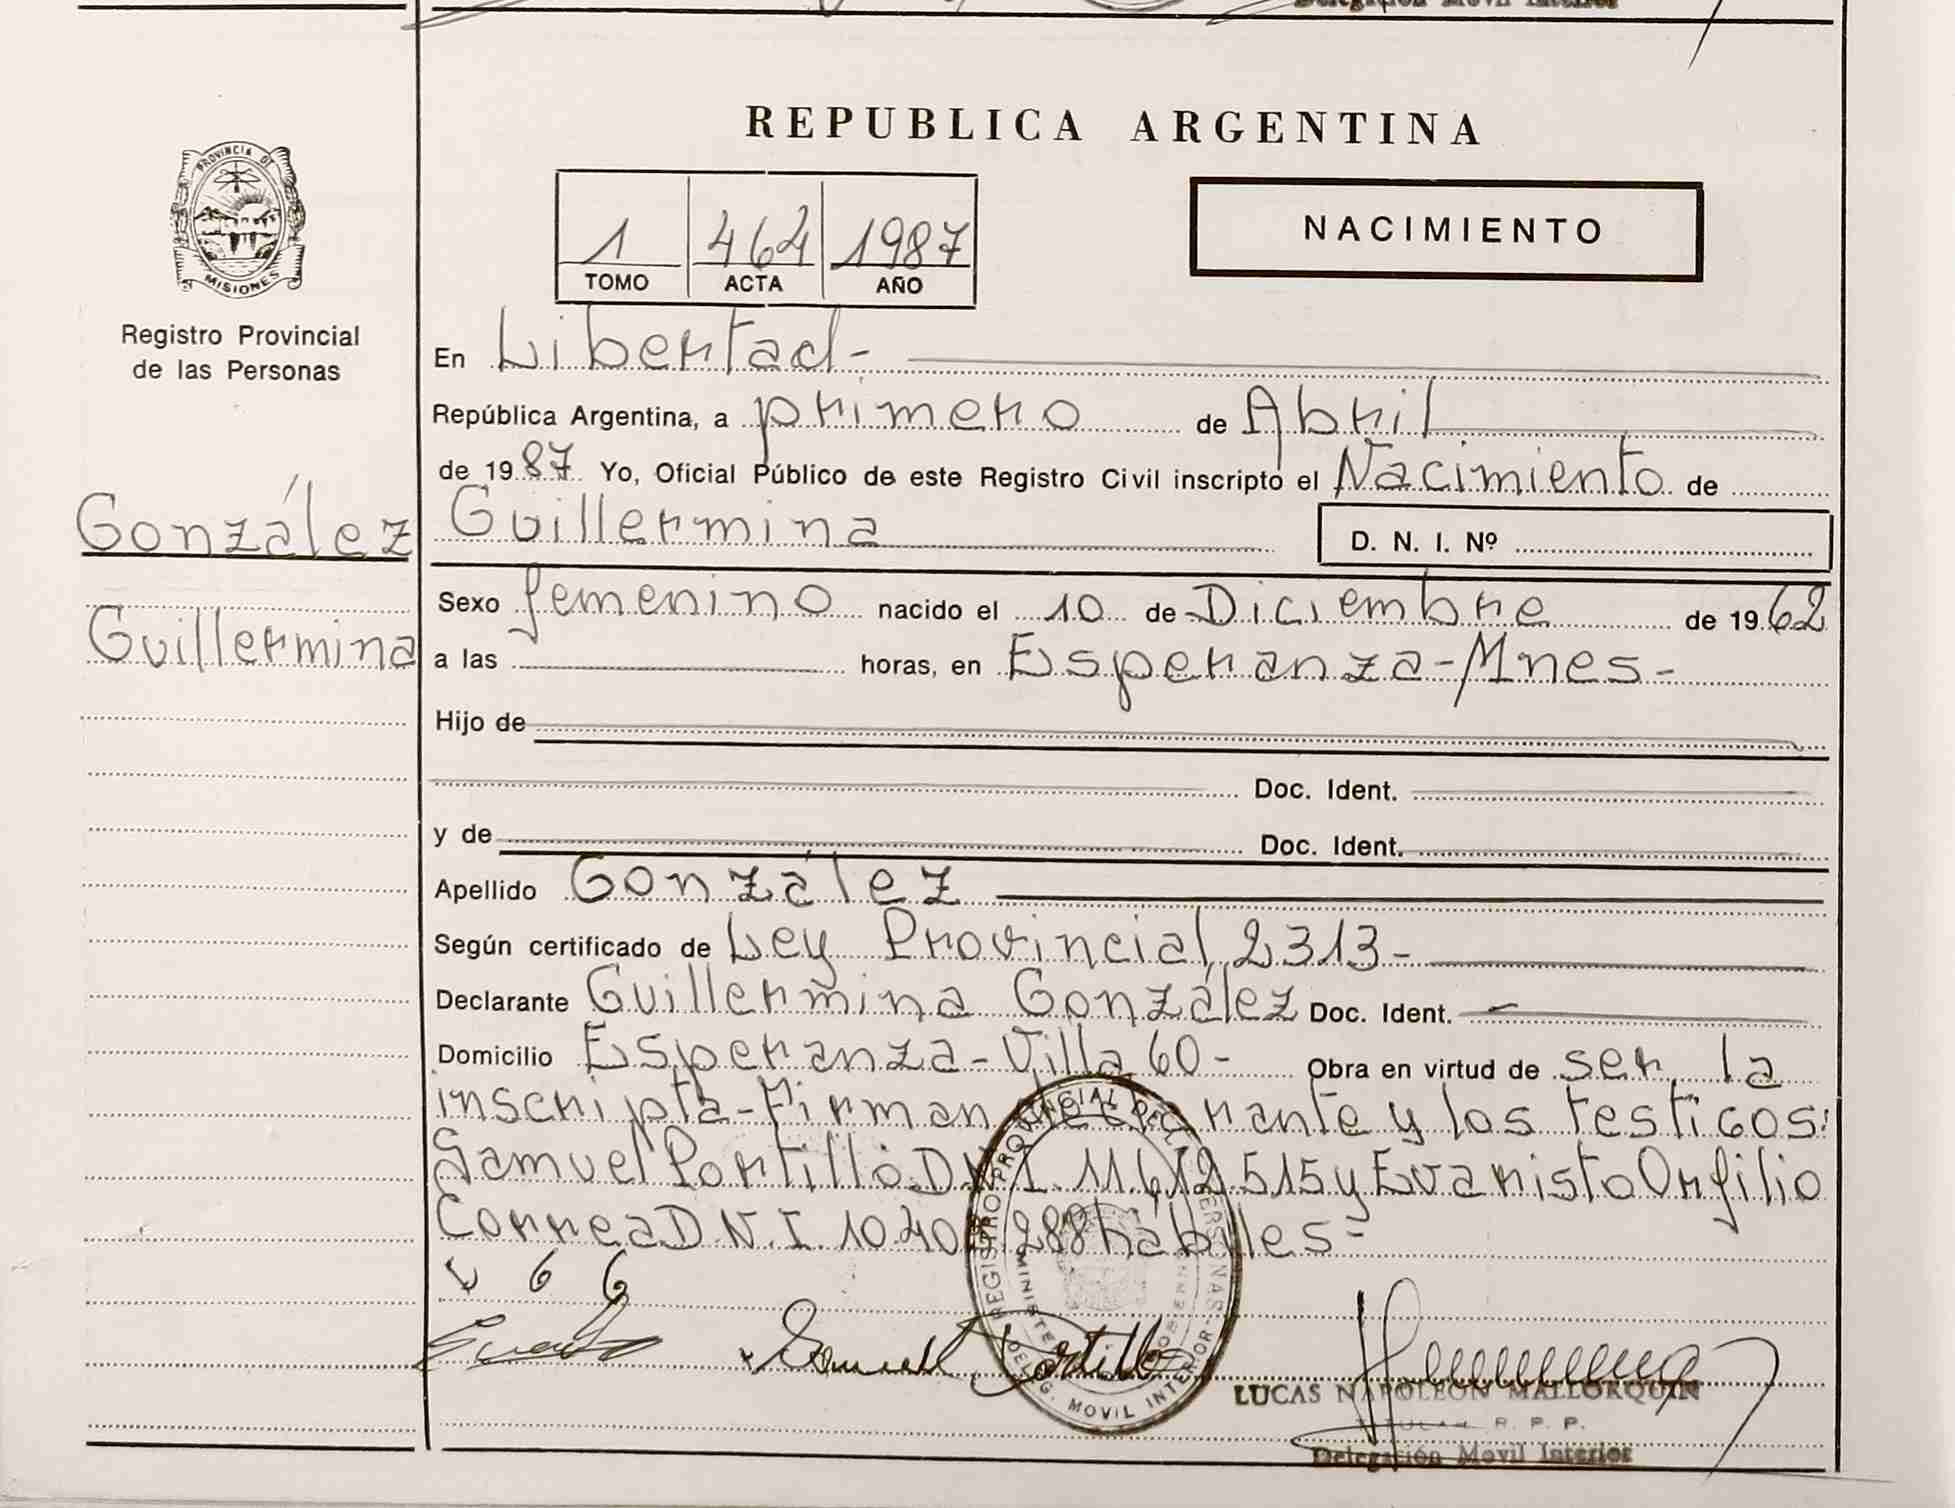 Delegación Movil Interior
REPUBLICA ARGENTINA
PROVINCIA DE
MISIONES
Registro Provincial
de las Personas
1 464 1987
TOMO ACTA AÑO
NACIMIENTO
En Libertad-
República Argentina, a primero de Abril
de 1987 Yo, Oficial Público de este Registro Civil inscripto el Nacimiento de
González
Guillermina
Guillermina
D. N. I. Nº
Sexo femenino nacido el 10 de Diciembre de 1962
a las horas, en Esperanza-Mnes-
Hijo de
Doc. Ident.
y de Doc. Ident.
Apellido González
Según certificado de Ley Provincial 2313-
Declarante Guillermina González Doc. Ident. -
Domicilio Esperanza-Villa 60- Obra en virtud de ser la
inscripta-Firman declarante y los testigos:
Samuel Portillo D.N.I. 11.612.515 y Evaristo Orfilio
Correa D.N.I. 10.401.288 hábiles=
L G G
Samuel Portillo
REGISTRO PROVINCIAL DE LAS PERSONAS
DELEG. MOVIL INTERIOR
LUCAS NAPOLEON MALLORQUIN
TITULAR R. P. P.
Delegación Movil Interior